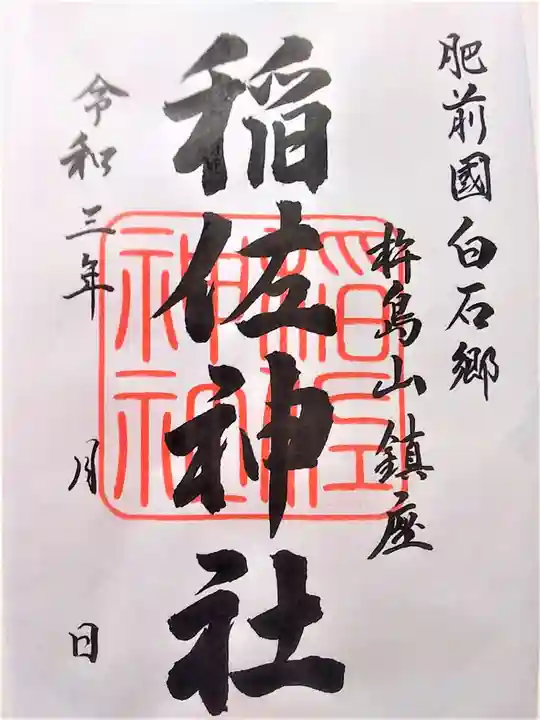 肥前國白石郷
杵島山鎮座
稲佐神社
令和三年 月 日
稲佐
神社